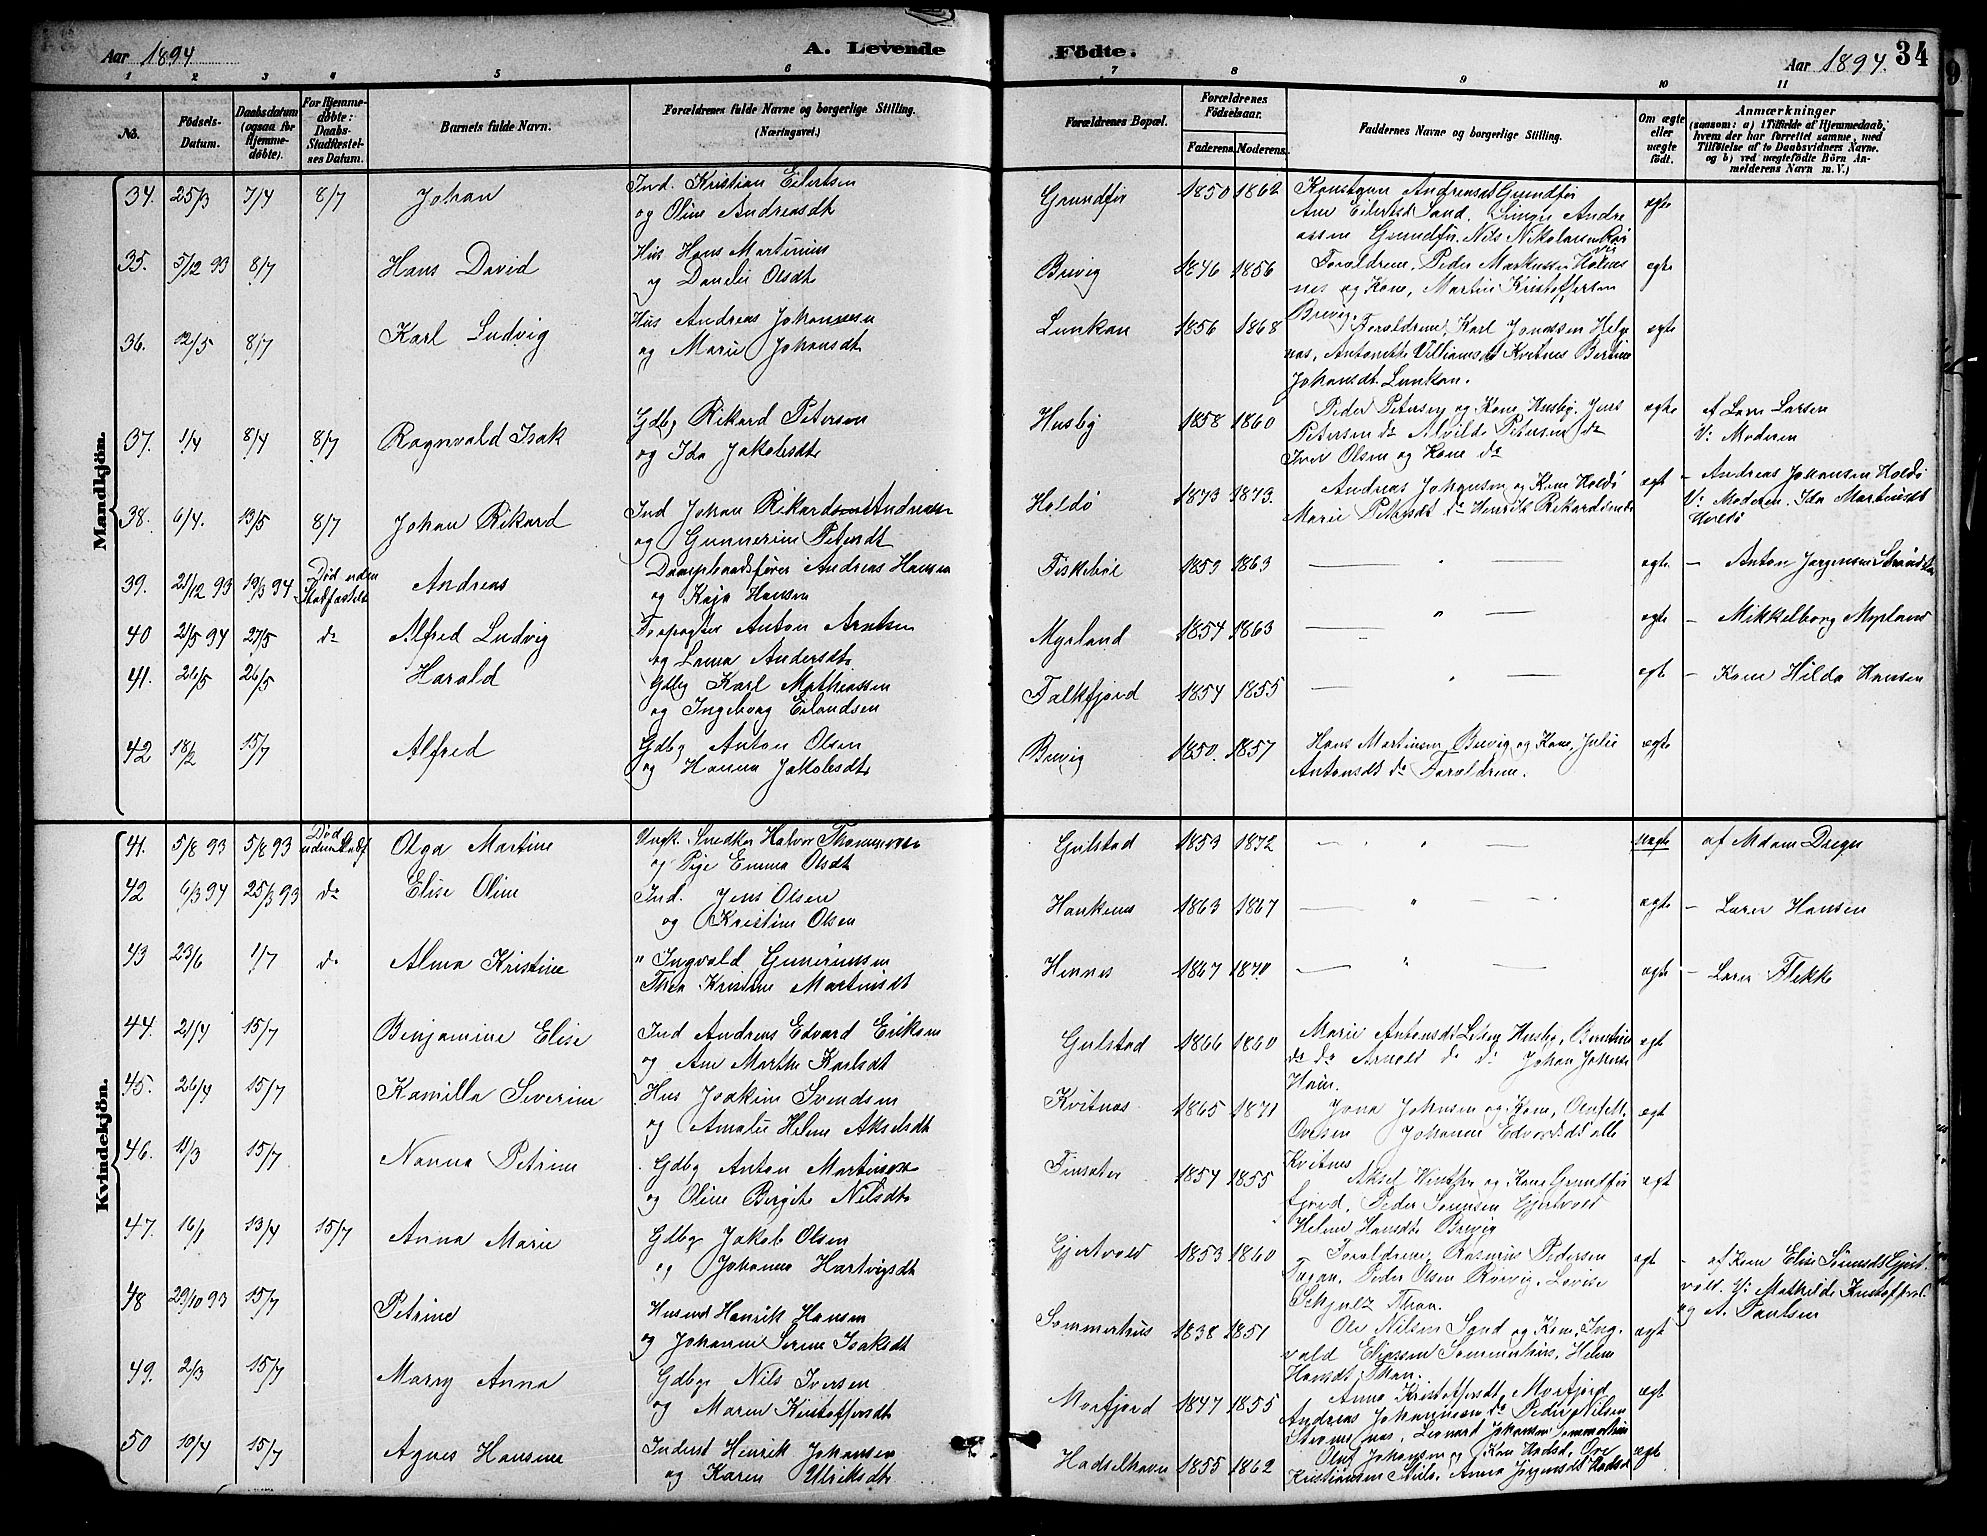 Aar 1894. A. Levende Fødte. Aar 1894. 34
1 2 3 4 5 6 7 8 9 10 11
No. Fødsels-Datum. Daabsdatum (ogsaa for Hjemmedøbte). For Hjemmedøbte: Daabs-Stadfæstelses Datum. Barnets fulde Navn. Forældrenes fulde Navne og borgerlige Stilling. (Næringsvei.) Forældrenes Bopæl. Forældrenes Fødselsaar. Faderens. Moderens. Faddernes Navne og borgerlige Stilling. Om ægte eller uægte født. Anmærkninger (saasom: a) i Tilfælde af Hjemmedaab, hvem der har forrettet samme, med Tilføielse af to Daabsvidners Navne. og b) ved uægtefødte Børn Anmelderens Navn m. V.)
Mandkjön.
34. 25/3 7/4 8/7 Johan Ind. Kristian Eilertsen og Oline Andreasdt Grundfør 1850 1862 Konstanse Andreasdt Grundfør
Ane Eilertsdt Sand. Andre
assen Grundfør. Nils Nikolaisen ægte
35. 5/12 93 8/7 Hans David Hus Hans Martinius og Danelie Olsdt Brevig 1846 1856 Forældrene, Peder Markussen Holmes
nes og Kone, Martin Kristoffersen
Brevig. ægte
36. 12/5 8/7 Karl Ludvig Hus Andreas Johannesen og Marie Johansdt Lunkan 1856 1868 Forældrene, Karl Jonassen Helge
nes, Antonette Villiamsdt Kvitnes Bertine
Johansdt Lunkan. ægte
37. 1/4 8/4 8/7 Ragnvald Isak Gdbg Rikard Petersen og Ida Jakobsdt Husby 1858 1860 Peder Petersen og Kone Husby. Jens
Petersen do Alvilde Petersen do
Iver Olsen og Kone do ægte af Lars Larsen
V: Moderen
38. 6/4. 13/5 8/7 Johan Rikard Ind Johan Rikardsen Andreassen og Gunnerine Petersdt Holdø 1873 1873. Andreas Johansen og Kone Holdø
Marie Petersdt do Henrik Rikardsen do ægt – Andreas Johansen Holdø
V: Moderen. Ida Martinsdt
Holdø
39. 21/12 93 19/3 94 Død uden Stadfæstelse Andreas Dampbaadsfører Andreas Hansen og Kaja Hansen Fiskebøl 1859 1863 — " — ægte – Anton Jørgensen Strandlan
40 21/5 94 27/5 do Alfred Ludvig Forpagter Anton Arntsen og Lorna Andersdt. Myrland 1854 1863 — " — ægte – Mikkelborg Myrland
41. 21/5 26/5 Harald Gdbg Karl Mathiassen og Ingeborg Erlandsen Falkfjord 1854 1855 — " — ægte – Kone Hilda Hansen
42 18/2 15/7 Alfred Gdbg Anton Olsen og Hanna Jakobsdt Brevig 1850. 1857 Hans Martinsen Brevig og Kone, Julie
Antonsdt do Forældrene. ægte
Kvindekjön.
41. 5/8 93 5/8 93 Død uden Stadf Olga Martine Ungk. Snedker Halvor Thomassen og Pige Emma Olsdt Gulstad 1853 1872 — " — uægte af Mdam Dreyer
42 6/3 94 25/3 93 do Elise Oline Ind. Jens Olsen og Kristine Olsen Haukenes 1863 1867 — " — ægte – Lærer Hansen
43 23/6 1/7 do Alma Kristine " Ingvald Gunerinsen Thea Kristine Martinsdt Hennes 1867 1870 — " — ægte – Lærer Flekke
44. 21/4 15/7 Benjamine Elise Ind Andreas Edvard Eriksen og Ane Marthe Karlsdt Gulstad 1866 1860 Marie Antonsdt Husby, Berntine
do do Arnold do do Johan Johans
ægt
45. 26/4 15/7 Kamilla Severine Hus Joakim Svendsen og Amalie Helene Akselsdt Kvitnes 1865 1871 Jona Johnsen og Kone,
Ovesen Johanne Edvardsdt alle
Kvitnes ægt
46. 11/3 15/7 Nanna Petrine Gdbg Anton Martinsen og Oline Bergite Nilsdt Finsæter 1854 1855 Aksel Winther og Kone Grundfør
fjord. Peder Sørensen Gjertvold
Helene Hansdt Brevig ægt
47. 16/1 13/4 15/7 Anna Marie Gdbg Jakob Olsen og Johanna Hartvigsdt Gjertvold 1853 1860 Forældrene, Rasmus Pedersen
Peder Olsen Rørvig, Lovise
Schjulz Than. ægt – af Kone Elise Sørensdt Gjert
vold. V: Mathilde Kristoffersd.
og A. Paulsen
48 29/10 93 15/7 Petrine Husmd Henrik Hansen og Johanne Serine Isaksdt Sommerhus 1838 1851 Ole Nilsen Sand og Kone, Ing
vald Eliassen Sommerhus, Helene
Hansdt, Than. ægt
49. 2/3 15/7 Marry Anna Gdbg Nils Iversen og Maren Kristoffersdt Morfjord 1847 1855 Anna Kristoffersdt, Morfjord
Andreas Johannesen do Peder Nilsen
Leonard Johansen Sommerhus ægt
50 10/4 15/7 Agnes Hansine Inderst Henrik Johansen og Karen Ulriksdt Hadselhavn 1855 1862 Oluf Johansen og Kone Hadsel, Ove
Kristiansen Anna Jørgensdt Hadsel ægt